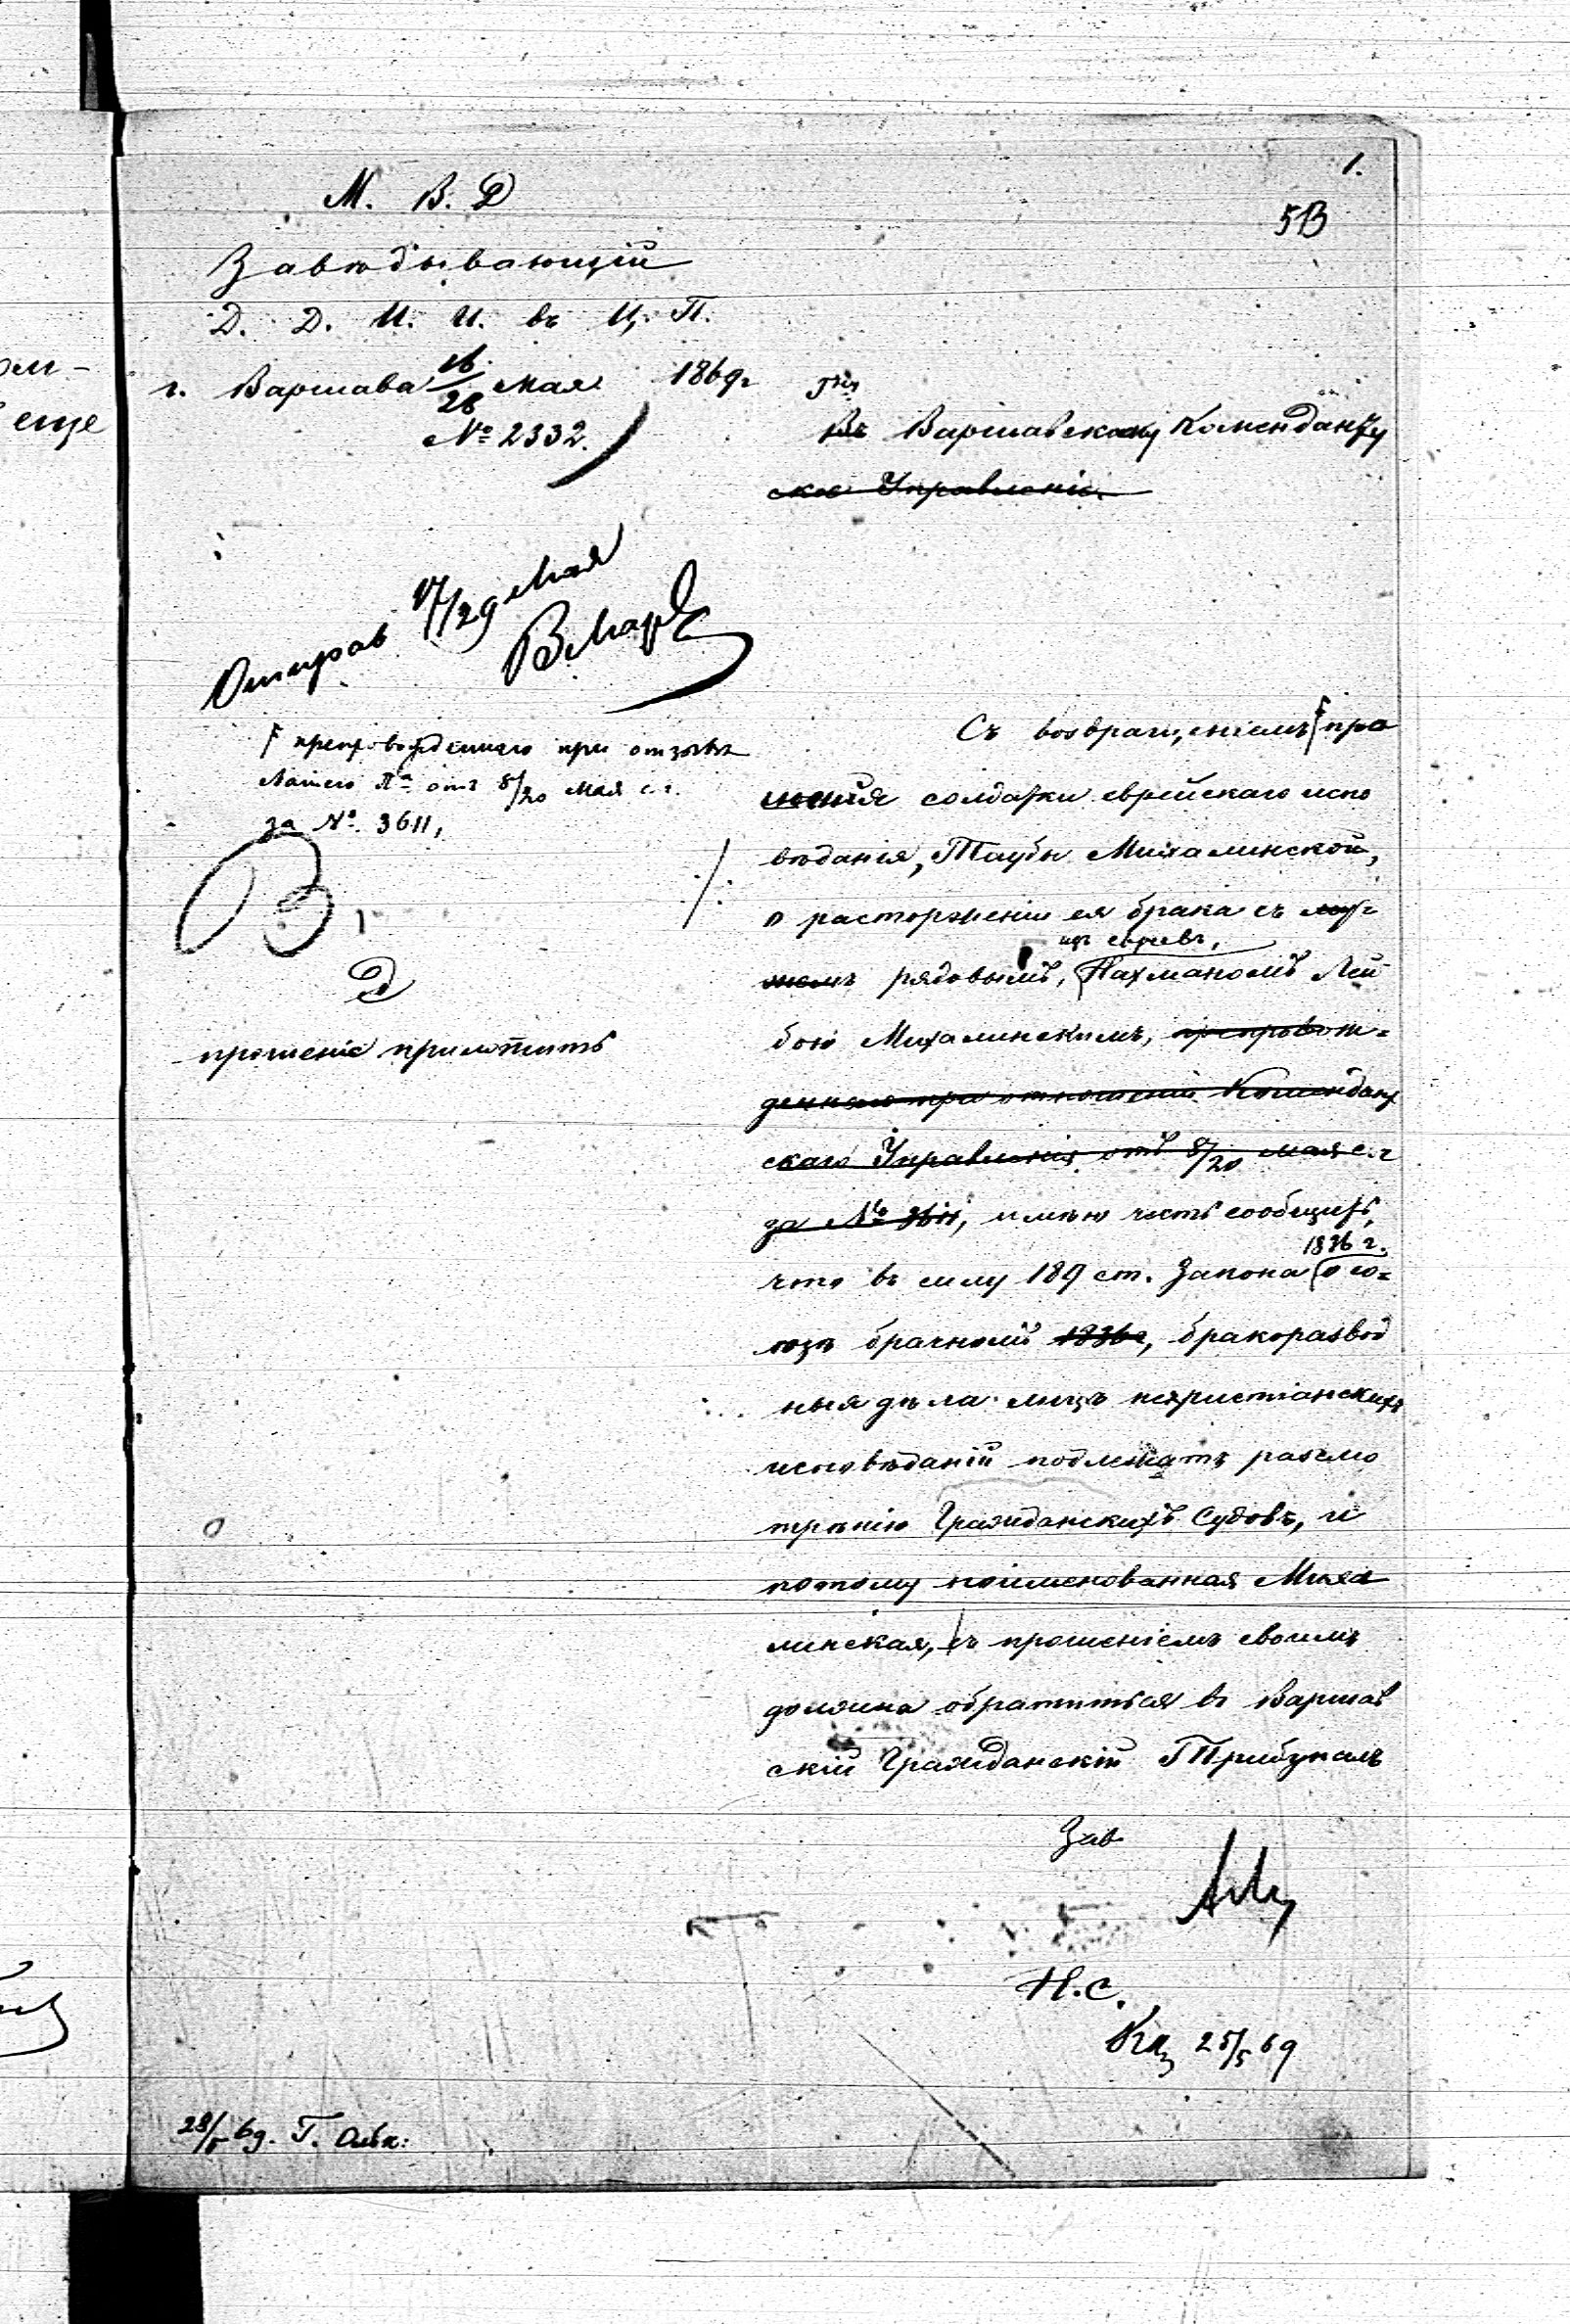 1.
5В
М. В. Д
Завѣдывающій
Д. Д. И. И. въ Ц. П.
г. Варшава 16/28 Мая 1869г
№ 2332.
Гну
Въ Варшавскому Коменданту
ское Управленіе
Отправ 17/29 Мая
препровожденнаго при отзывѣ
Вашего Пр отъ 8/20 Мая с. г.
за №. 3611,
прошеніе приложить
Съ возвращеніемъ про
шенія солдатки еврейскаго испо
вѣданія, Таубы Михалинской,
о расторженіи ея брака съ му-
изъ евреевъ,
жемъ рядовымъ, Нахманомъ Лей
бою Михалинскимъ, препровож=
деннаго при отношеніи Комендант
скаго Управленія отъ 8/20 мая с. г
за № 3611, имѣю честь сообщить,
1836 г.
что въ силу 189 ст. Закона о со=
юзѣ брачномъ 1836г, бракоразвод
ныя дѣла лицъ нехристіанскихъ
исповѣданій подлежатъ разсмо
трѣнію Гражданскихъ Судовъ, и
потому поименованная Миха
линская, съ прошеніемъ своимъ
должна обратиться въ Варшав
скій Гражданскій Трибуналъ
Зав
Н. С.
25/5 69
28/5 69. Г.
еще